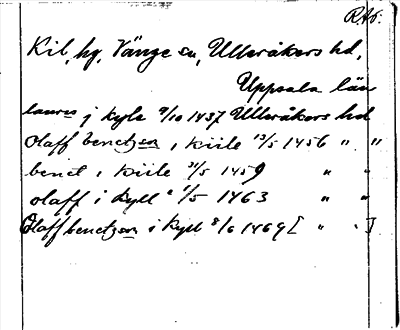 RAp.
Kil, hg, Vänge sn, Ulleråkers hd,
Uppsala län
laures j kyle 9/10 1437 Ulleråkers hd
Olaff benctzson i Kiile 13/5 1456 " "
benct i Kiile 31/5 1459 " "
olaff i kyll 1/5 1463 " "
Olaff benctzson i kyll 8/6 1469 [ " " ]